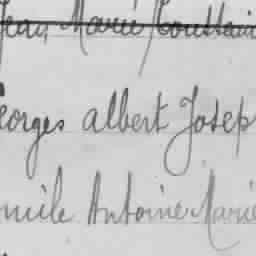 Jean Marie Toussain
eorges albert Josep
mile Antoine Marie